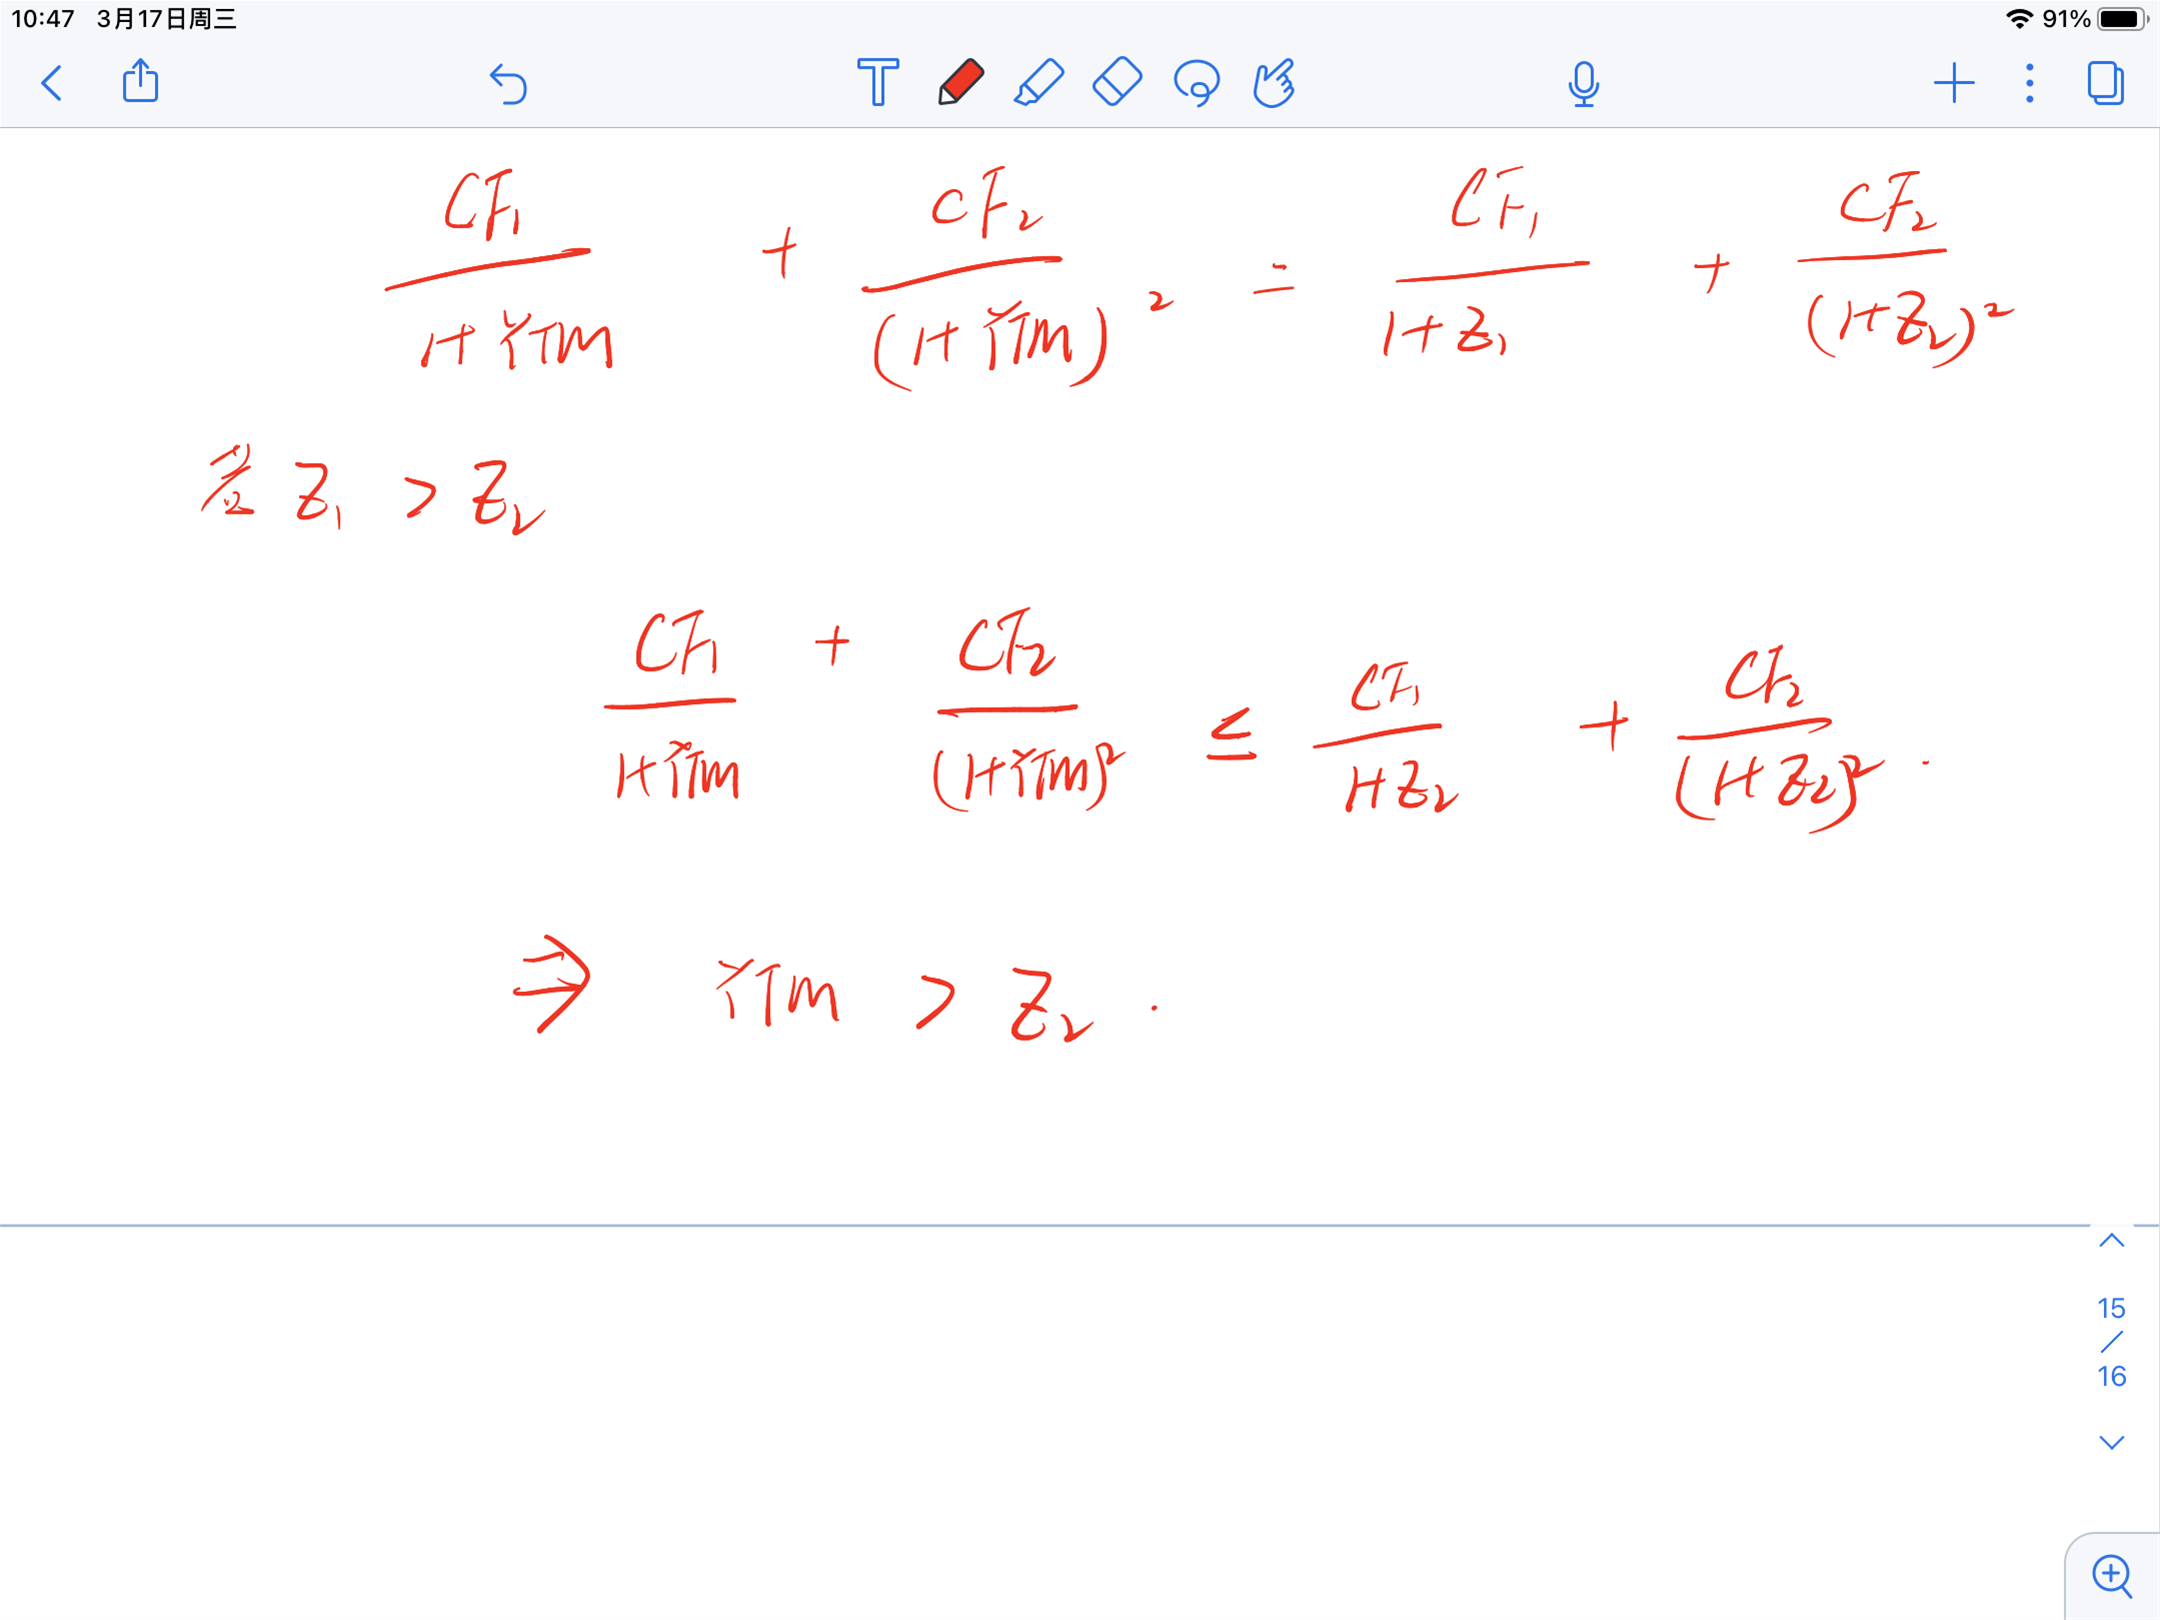 10:47 3月17日周三 91%
CF₁/(1+YTM) + CF₂/(1+YTM)² = CF₁/(1+Z₁) + CF₂/(1+Z₂)²
若 Z₁ > Z₂
CF₁/(1+YTM) + CF₂/(1+YTM)² ≤ CF₁/(1+Z₂) + CF₂/(1+Z₂)² .
⇒ YTM > Z₂ .
15
/
16